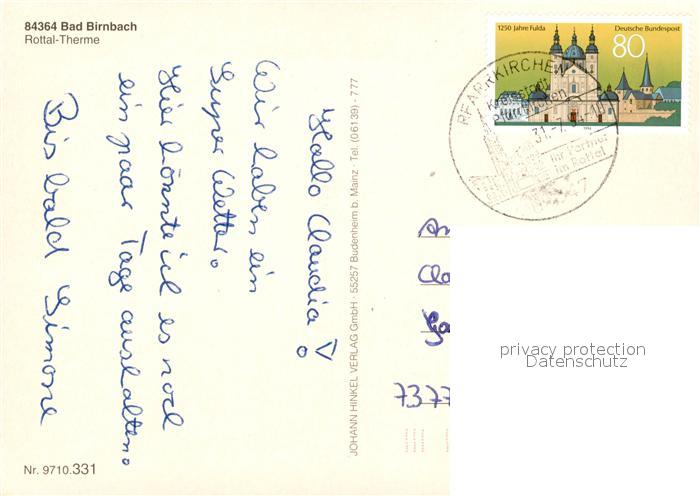 84364 Bad Birnbach
Rottal-Therme
Hallo Claudia!
Wir haben ein
Super Wetter.
Hier könnte ich es noch
ein paar Tage aushalten.
Bis bald Simone
Nr. 9710.331
JOHANN HINKEL VERLAG GmbH · 55257 Budenheim b. Mainz · Tel. (06139) - 777
1250 Jahre Fulda
Deutsche Bundespost
80
PFARRKIRCHEN
Kreisstadt
Pfarrkirchen
31.-7.
Ihr Partner
im Rottal
An
Cla
7377
privacy protection
Datenschutz